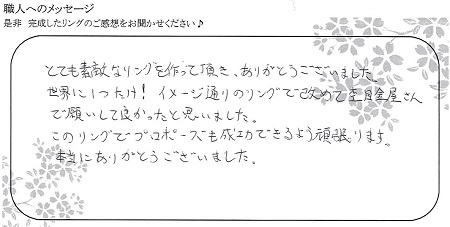 職人へのメッセージ
是非 完成したリングのご感想をお聞かせください♪
とても素敵なリングを作って頂き、ありがとうございました。
世界に1つだけ！イメージ通りのリングで改めて杢目金屋さん
で願いして良かったと思いました。
このリングでプロポーズも成功できるよう頑張ります。
本当にありがとうございました。